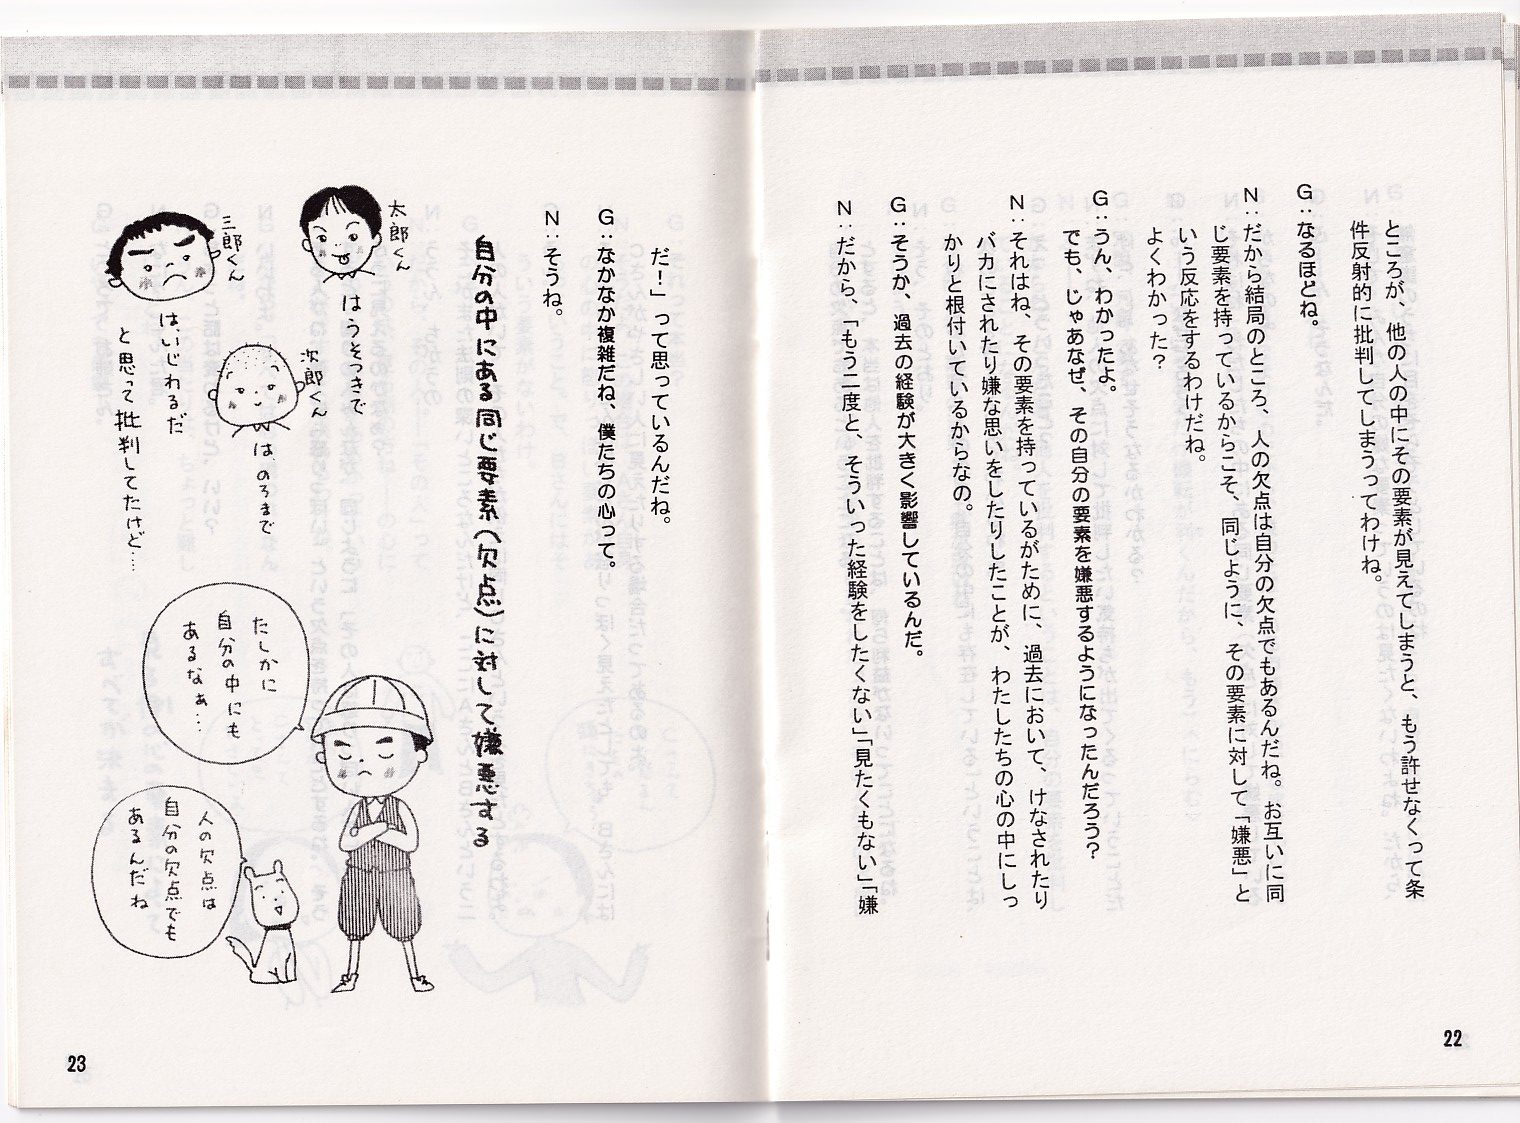 ところが、他の人の中にその要素が見えてしまうと、もう許せなくって条
件反射的に批判してしまうってわけね。
G：なるほどね。
N：だから結局のところ、人の欠点は自分の欠点でもあるんだね。お互いに同
じ要素を持っているからこそ、同じように、その要素に対して「嫌悪」と
いう反応をするわけだね。
よくわかった？
G：うん、わかったよ。
でも、じゃあなぜ、その自分の要素を嫌悪するようになったんだろう？
N：それはね、その要素を持っているがために、過去において、けなされたり
バカにされたり嫌な思いをしたりしたことが、わたしたちの心の中にしっ
かりと根付いているからなの。
G：そうか、過去の経験が大きく影響しているんだ。
N：だから、「もう二度と、そういった経験をしたくない」「見たくもない」「嫌
22
だ！」って思っているんだね。
G：なかなか複雑だね、僕たちの心って。
N：そうね。
自分の中にある同じ要素（欠点）に対して嫌悪する
太郎くん
はうそつきで
次郎くん
は、のろまで
三郎くん
は、いじわるだ
と思って批判してたけど…
たしかに
自分の中にも
あるなぁ…
人の欠点は
自分の欠点でも
あるんだね
23